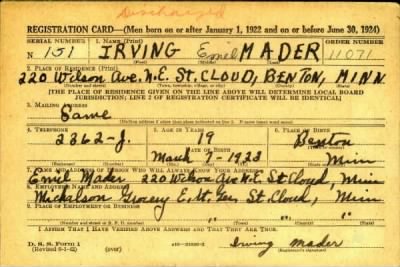 Discharged
REGISTRATION CARD—(Men born on or after January 1, 1922 and on or before June 30, 1924)
SERIAL NUMBER 1. NAME (Print) ORDER NUMBER
N 151 IRVING Emil MADER 11071
2. PLACE OF RESIDENCE (Print)
220 Wilson Ave. N.E. ST. CLOUD, BENTON, MINN
(Number and street) (Town, township, village, or city) (County) (State)
[THE PLACE OF RESIDENCE GIVEN ON THE LINE ABOVE WILL DETERMINE LOCAL BOARD
JURISDICTION; LINE 2 OF REGISTRATION CERTIFICATE WILL BE IDENTICAL]
3. MAILING ADDRESS
Same
[Mailing address if other than place indicated on line 2. If same insert word same]
4. TELEPHONE 5. AGE IN YEARS 6. PLACE OF BIRTH
2362-J. 19 Benton
DATE OF BIRTH
March 7-1923 Minn
(Exchange) (Number) (Mo.) (Day) (Yr.) (State or country)
7. NAME AND ADDRESS OF PERSON WHO WILL ALWAYS KNOW YOUR ADDRESS
Emil Mader 220 Wilson Ave N.E St Cloud, Minn
8. EMPLOYER'S NAME AND ADDRESS
Grocery E. St. St. Cloud, Minn
9. PLACE OF EMPLOYMENT OR BUSINESS
" " "
(Number and street or R. F. D. number) (Town) (County) (State)
I AFFIRM THAT I HAVE VERIFIED ABOVE ANSWERS AND THAT THEY ARE TRUE.
D. S. S. Form 1
(Revised 6-1-42) (over) Irving Mader